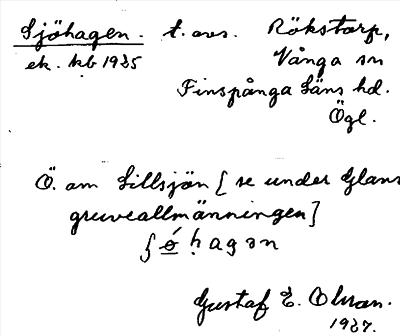 Sjöhagen. t. avs. Rökstorp,
ek. kb 1925 Vånga sn
Finspånga läns hd.
Ögl.
Ö. om Lillsjön [se under Glans
gruveallmänningen]
ʃö́hagən
Gustaf E. Olsson.
1927.